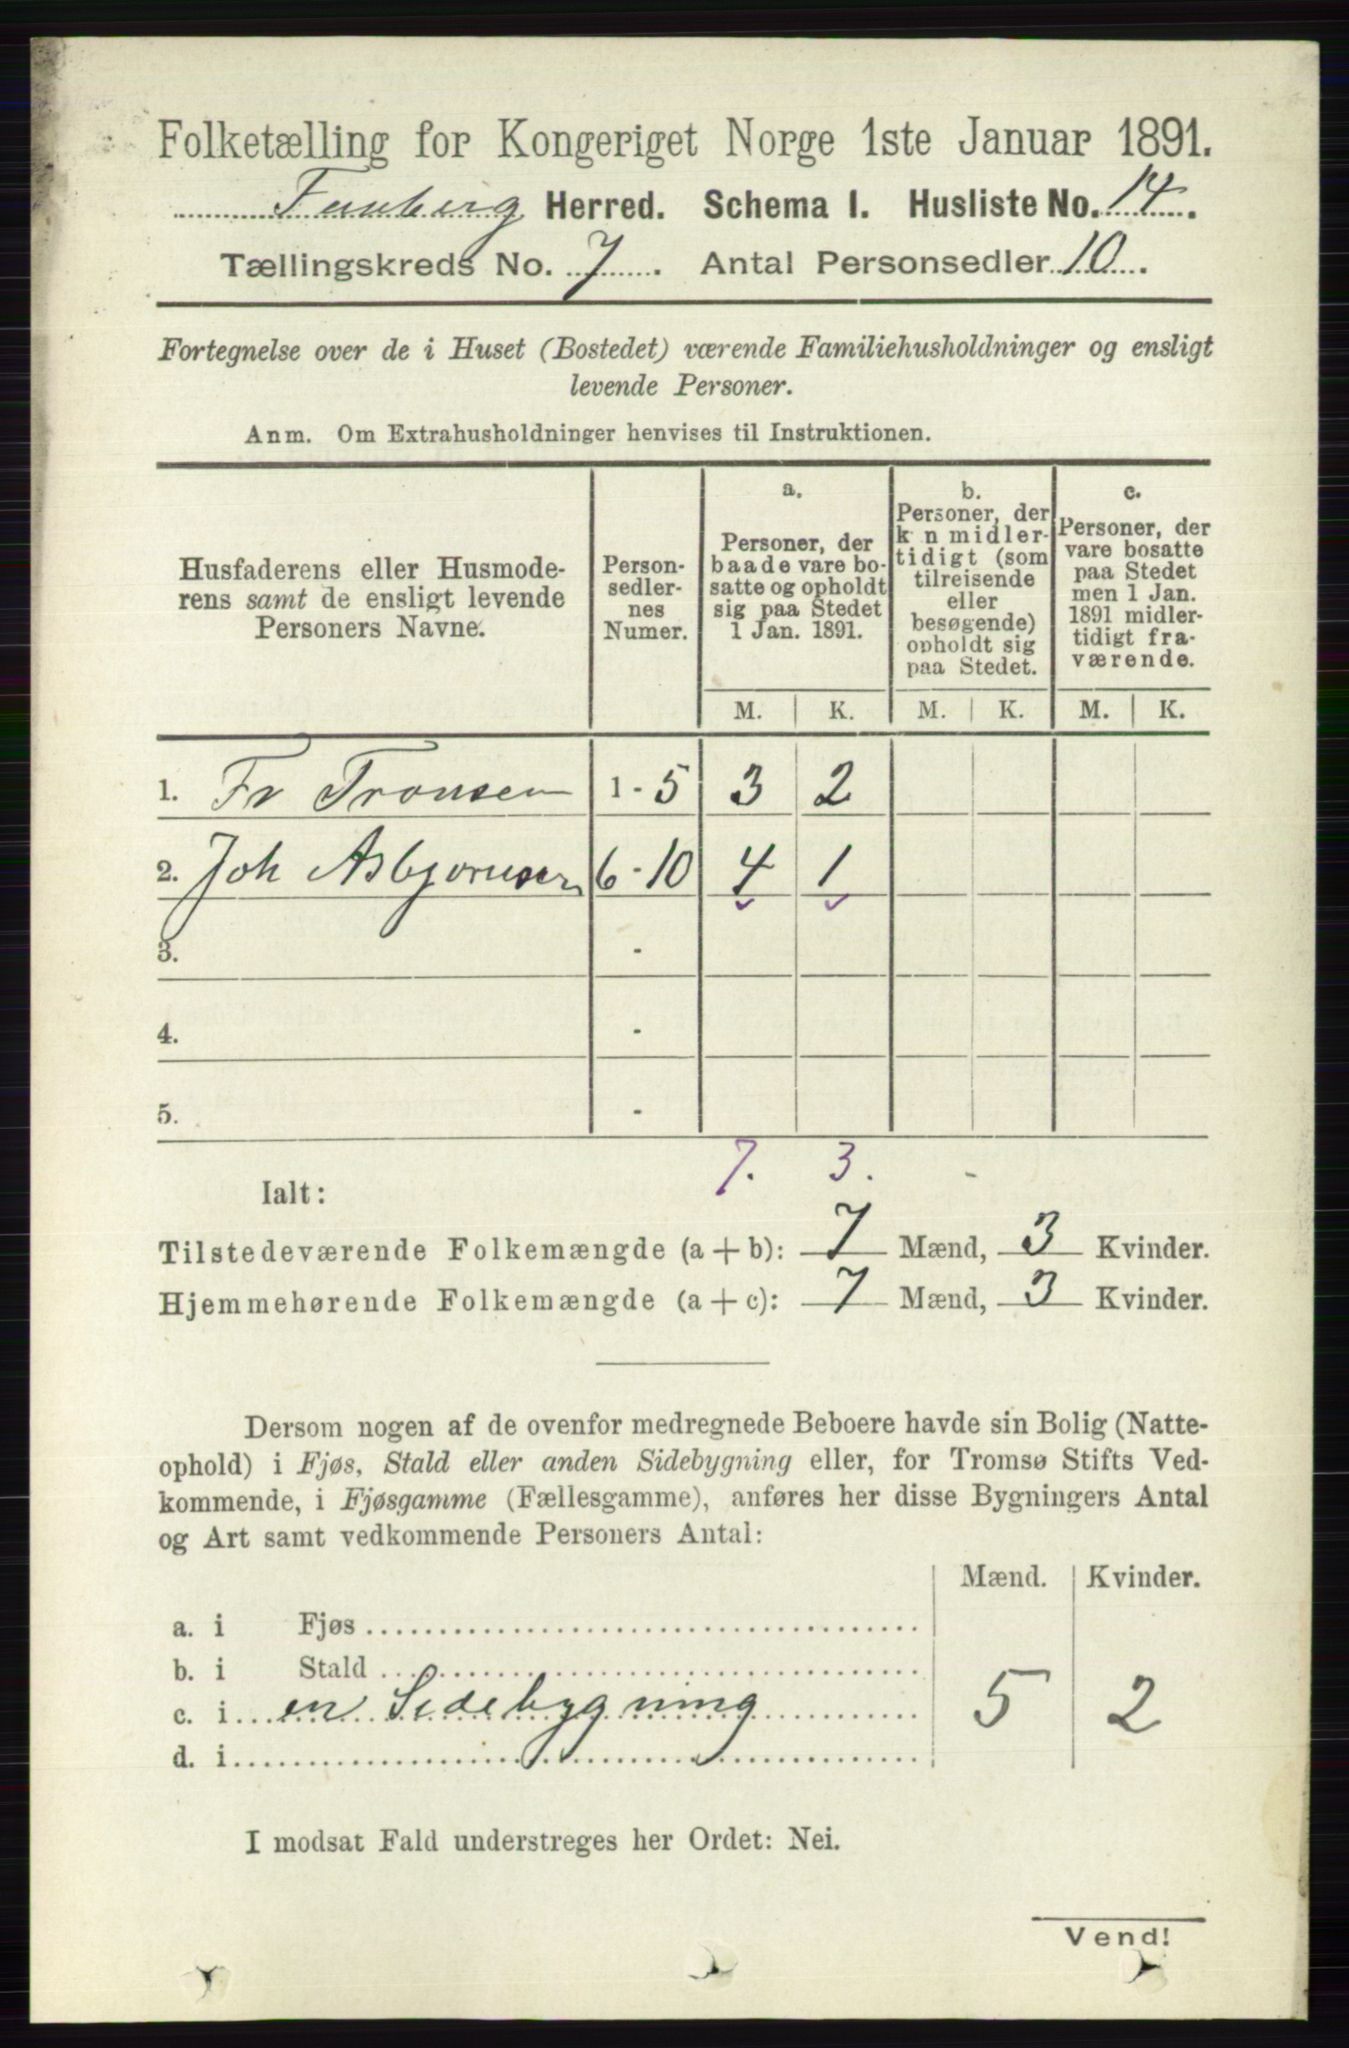 Folketælling for Kongeriget Norge 1ste Januar 1891.
Faaberg Herred. Schema I. Husliste No. 14.
Tællingskreds No. 7. Antal Personsedler 10.
Fortegnelse over de i Huset (Bostedet) værende Familiehusholdninger og ensligt
levende Personer.
Anm. Om Extrahusholdninger henvises til Instruktionen.
Husfaderens eller Husmode-
rens samt de ensligt levende
Personers Navne.
Person-
sedler-
nes
Numer.
a.
Personer, der
baade vare bo-
satte og opholdt
sig paa Stedet
1 Jan. 1891.
b.
Personer, der
k n midler-
tidigt (som
tilreisende
eller
besøgende)
opholdt sig
paa Stedet.
c.
Personer, der
vare bosatte
paa Stedet
men 1 Jan.
1891 midler-
tidigt fra-
værende.
M. K. M. K. M. K.
1. Fr Tronsen 1 - 5 3 2
2. Joh Asbjørnsen 6 - 10 4 1
3. -
4. -
5. -
7. 3. -
Ialt:
Tilstedeværende Folkemængde (a + b): 7 Mænd, 3 Kvinder.
Hjemmehørende Folkemængde (a + c): 7 Mænd, 3 Kvinder.
Dersom nogen af de ovenfor medregnede Beboere havde sin Bolig (Natte-
ophold) i Fjøs, Stald eller anden Sidebygning eller, for Tromsø Stifts Ved-
kommende, i Fjøsgamme (Fællesgamme), anføres her disse Bygningers Antal
og Art samt vedkommende Personers Antal:
Mænd. Kvinder.
a. i Fjøs
b. i Stald
c. i en Sidebygning 5 2
d. i
I modsat Fald understreges her Ordet: Nei.
Vend!